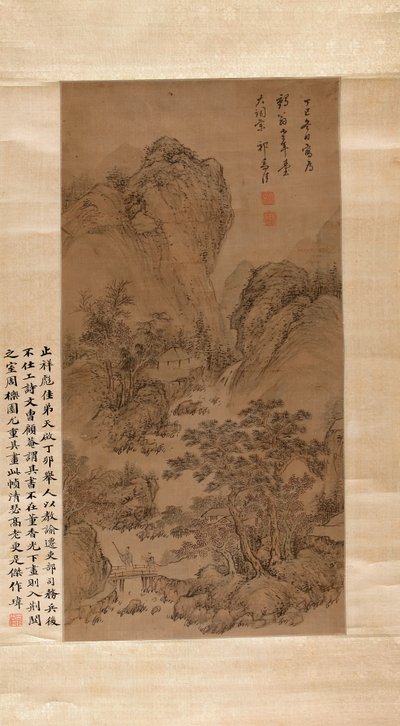 丁巳冬日寫為
翁年臺
大詞宗 祁豸佳
止祥彪佳弟天啟丁卯舉人以教諭遷吏部司務兵後
不仕工詩文曹顧菴謂其書不在董香光下畫則入荊關
之室周櫟園尤重其畫此幀清瑟高老更是傑作瑋